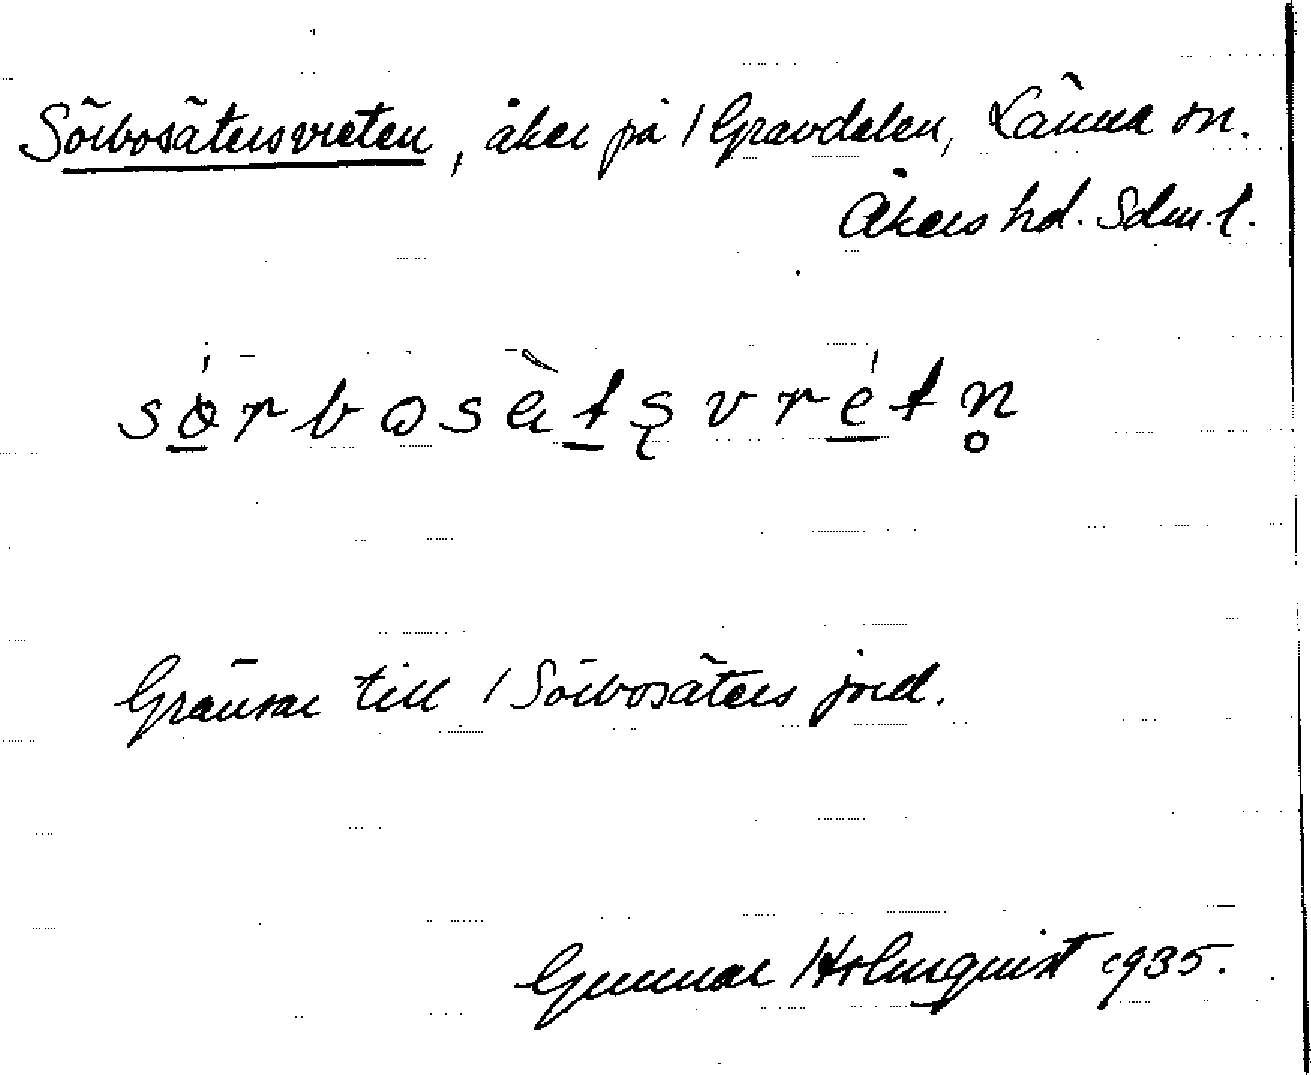 Sörbosätersvreten, åker på / Gravdalen, Länna sn.
Åkers hd. Sdm. l.
Gränsar till / Sörbosäters jord.
Gunnar Holmquist 1935.